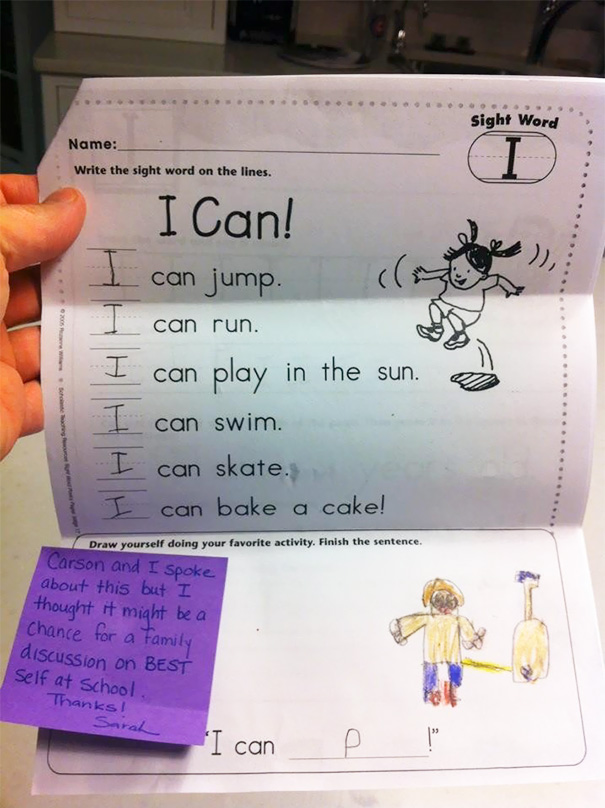 Sight Word
I
Name:
Write the sight word on the lines.
I Can!
I can jump.
I can run.
I can play in the sun.
I can swim.
I can skate.
I can bake a cake!
Draw yourself doing your favorite activity. Finish the sentence.
Carson and I spoke
about this but I
thought it might be a
chance for a family
discussion on BEST
self at school.
Thanks!
Sarah
"I can P !"